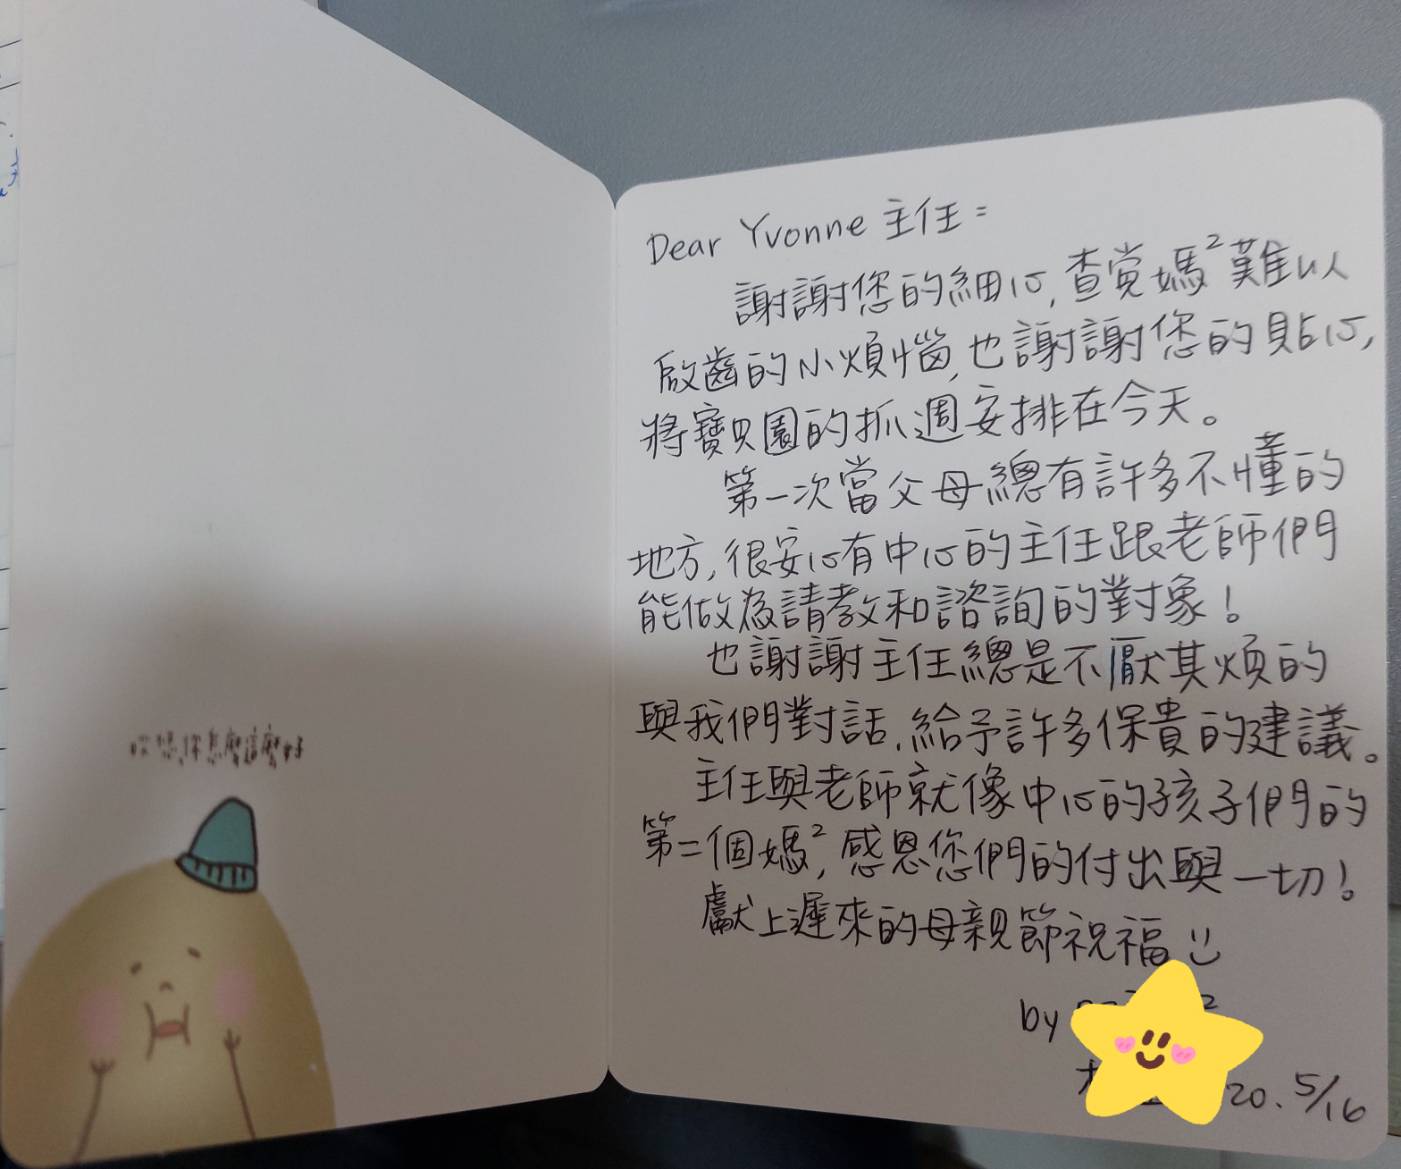 Dear Yvonne 主任：
謝謝您的細心,查覺媽²難以
啟齒的小煩惱,也謝謝您的貼心,
將寶貝園的抓週安排在今天。
第一次當父母總有許多不懂的
地方,很安心有中心的主任跟老師們
能做為請教和諮詢的對象！
也謝謝主任總是不厭其煩的
與我們對話,給予許多保貴的建議。
主任與老師就像中心的孩子們的
第二個媽²,感恩您們的付出與一切！
獻上遲來的母親節祝福
by
20. 5/16
你怎麼這麼好